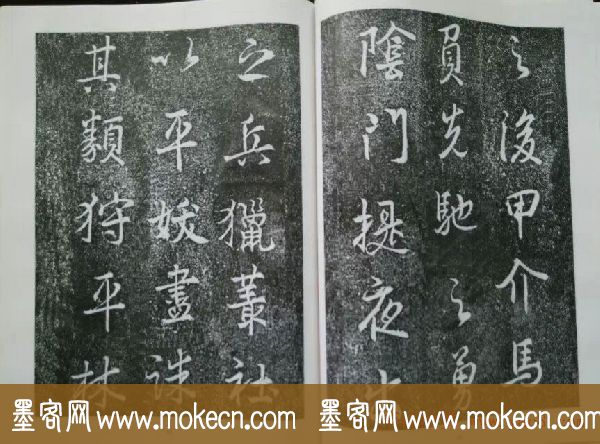 之後甲介馬
負先馳之勇
陰門提夜
之兵獵叢社
以平妖盡誅
其類狩平林
墨客网 www.mokecn.com 墨客网 www.mokecn.com